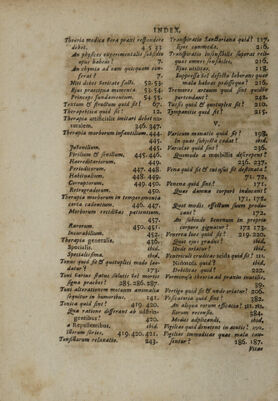 INDEX.
Theoria medica vera praxi respondere
debet. 4. 5 33
An physices experimentalis subsidio
opus habeas ? 7.
An chymia ad eam quicquam con-
ferat ? 7.
Niti debet veritate facti. 52. 53.
Ejus præcipua momenta. 53. 54.
Princeps fundamentum. 54. 55.
Textum & structum quid sit ? 67.
Therapeutica quid sit ? 12.
Therapia artificialis imitari debet na-
turalem. 346. 347.
Therapia morborum infantilium. 444.
445.
Juvenilium. 445.
Virilium & senilium. 445. 446.
Hæreditariorum. 447.
Periodicorum. 447. 448.
Habitualium. 448. 449.
Corruptorum. 449. 450.
Retrogradorum. 450.
Therapia morborum in temperamento
certo calentium. 426. 427.
Morborum rectitius patientium.
457.
Rariorum. 450. 451.
Incurabilium. 452.
Therapia generalis. 436.
Specialis. ibid.
Specialissima. ibid.
Tonus quid sit & quotuplici modo læ-
datur ? 173.
Toni partus status salutis vel mortis
signa præbet ? 285. 286. 287.
Toni alterationem motuum anomalia
sequitur in humoribus. 141.
Tonica quid sint ? 419. 420.
Qua ratione differant ab adstrin-
gentibus? 420.
a Repellentibus, ibid.
Tonum firmans, 419. 420. 421.
Tonsillarum relaxatio. 243.
Transpiratio Sanctoriana quid? 227.
Ejus commoda. 216.
Transpiratio insensibilis superat reli-
quas omnes sensibiles, 216.
Ejus utilitas. 218.
Suppressa vel defectu laborans quæ
mala habeat pedissequa ? 216.
Tremores artuum quid sint quidve
portendant? 242.
Tussis quid & quotuplex sit ? 210.
Tympanites quid sit ? 215.
V.
Varicum momaxis quid sit ? 198.
In quas subjecta cadat ? ibid.
Variolæ quid sint? 236.
Quomodo a morbillis discrepent ?
236. 237.
Vena quid sit & cur ejus sit distributa ?
71. 72.
Venena quid sint? 171.
Quas damna corpori inducant ?
171. 172.
Quot modis effectum suum produ-
cant? 172.
An subinde venenum in proprio
corpore gignatur? 172 173.
Venerea lues quid sit? 219. 220.
Qui ejus gradus? ibid.
Unde oriatur? ibid.
Ventriculi cruditas acida quid sit ? 11.
Nidorosa quid ? ibid.
Debilitas quid ? 222.
Verminosæ theoria ad praxin inutilis,
89.
Vertigo quid sit & unde oriatur? 206.
Vesicatoria quid sint? 382.
An aliqua eorum efficacia ? ibid.
Eorum recensio. 384.
Modus adplicandi. ibid.
Vigiliæ quid denotent in acutis ? 290.
Vigiliæ immodicæ quæ mala cau-
sentur? 186. 187.
Vitæ